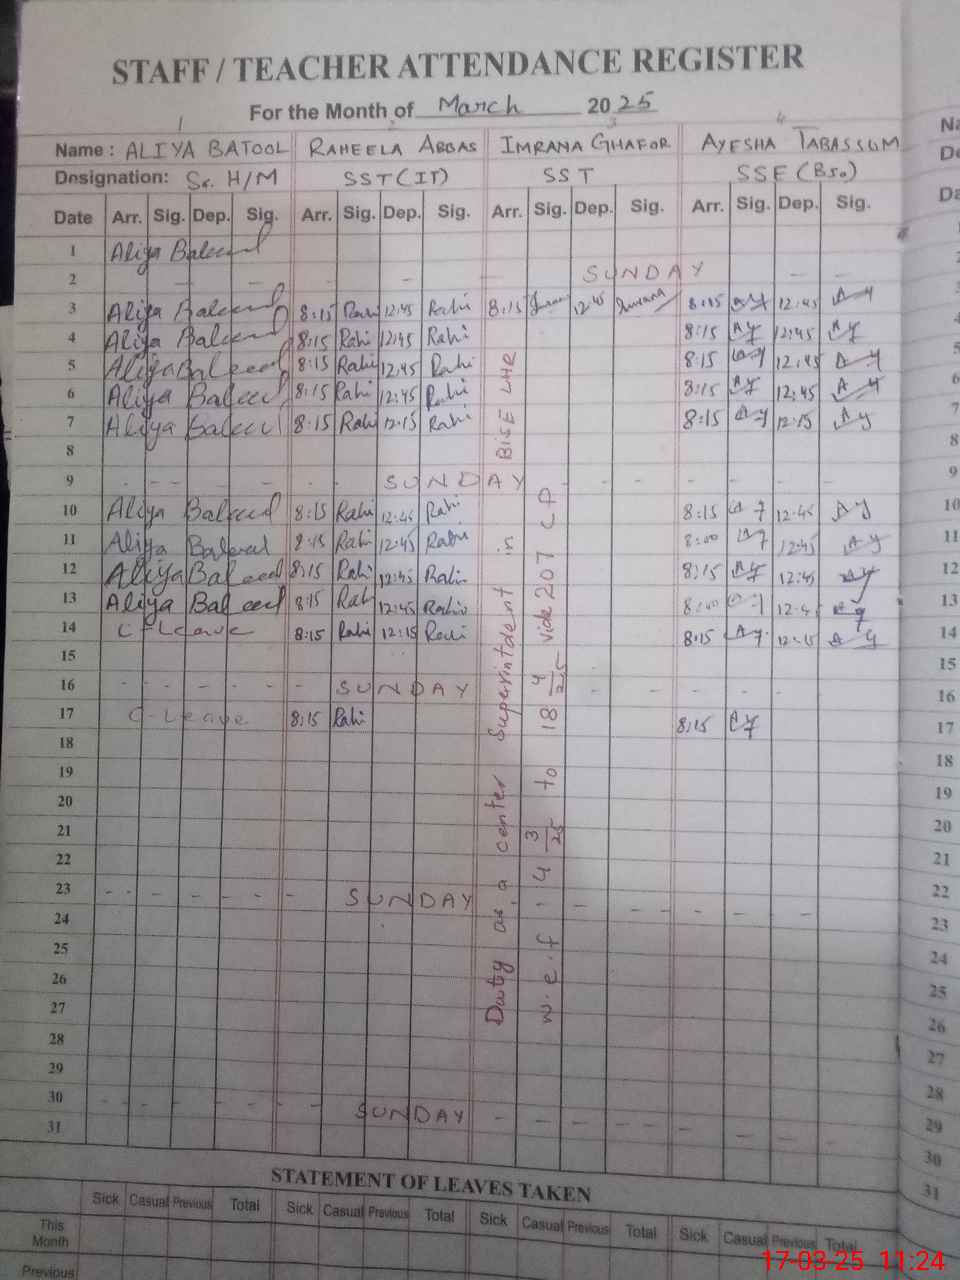 STAFF / TEACHER ATTENDANCE REGISTER
For the Month of March 2025
1 2 3 4
Name : ALIYA BATOOL RAHEELA ABBAS IMRANA GHAFOR AYESHA TABASSUM
Designation: Sr. H/M SST (IT) SST SSE (Bio)
Date Arr. Sig. Dep. Sig. Arr. Sig. Dep. Sig. Arr. Sig. Dep. Sig. Arr. Sig. Dep. Sig.
1 Aliya Batool
2 - - - - SUNDAY - -
3 Aliya Batool 8:15 Rahi 12:45 Rahi 8:15 12:45 Imrana 8:15 AY 12:45 AY
4 Aliya Batool 8:15 Rahi 12:45 Rahi 8:15 AY 12:45 AY
5 Aliya Batool 8:15 Rahi 12:45 Rahi 8:15 AY 12:45 AY
6 Aliya Batool 8:15 Rahi 12:45 Rahi 8:15 AY 12:45 AY
7 Aliya Batool 8:15 Rahi 12:15 Rahi 8:15 AY 12:15 AY
8
9 - - - - - - SUNDAY - - - - - -
10 Aliya Batool 8:15 Rahi 12:45 Rahi 8:15 AY 12:45 AY
11 Aliya Batool 8:15 Rahi 12:45 Rahi 8:00 AY 12:45 AY
12 Aliya Batool 8:15 Rahi 12:45 Rahi 8:15 AY 12:45 AY
13 Aliya Batool 8:15 Rahi 12:45 Rahi 8:00 AY 12:45 AY
14 C-Leave 8:15 Rahi 12:15 Rahi 8:15 AY 12:15 AY
15
16 - - - - - SUNDAY - - - - -
17 C-Leave 8:15 Rahi 8:15 AY
18
19
20
21
22
23 - - - - - SUNDAY - - - - - -
24
25
26
27
28
29
30 - - - - - - SUNDAY - - - - - - - -
31
Duty as a center Superintdent in BISE LHR
w.e.f 14 3/25 to 18 4/25 vide 207 CA
STATEMENT OF LEAVES TAKEN
Sick Casual Previous Total Sick Casual Previous Total Sick Casual Previous Total Sick Casual Previous Total
This Month
Previous
17-03-25 11:24